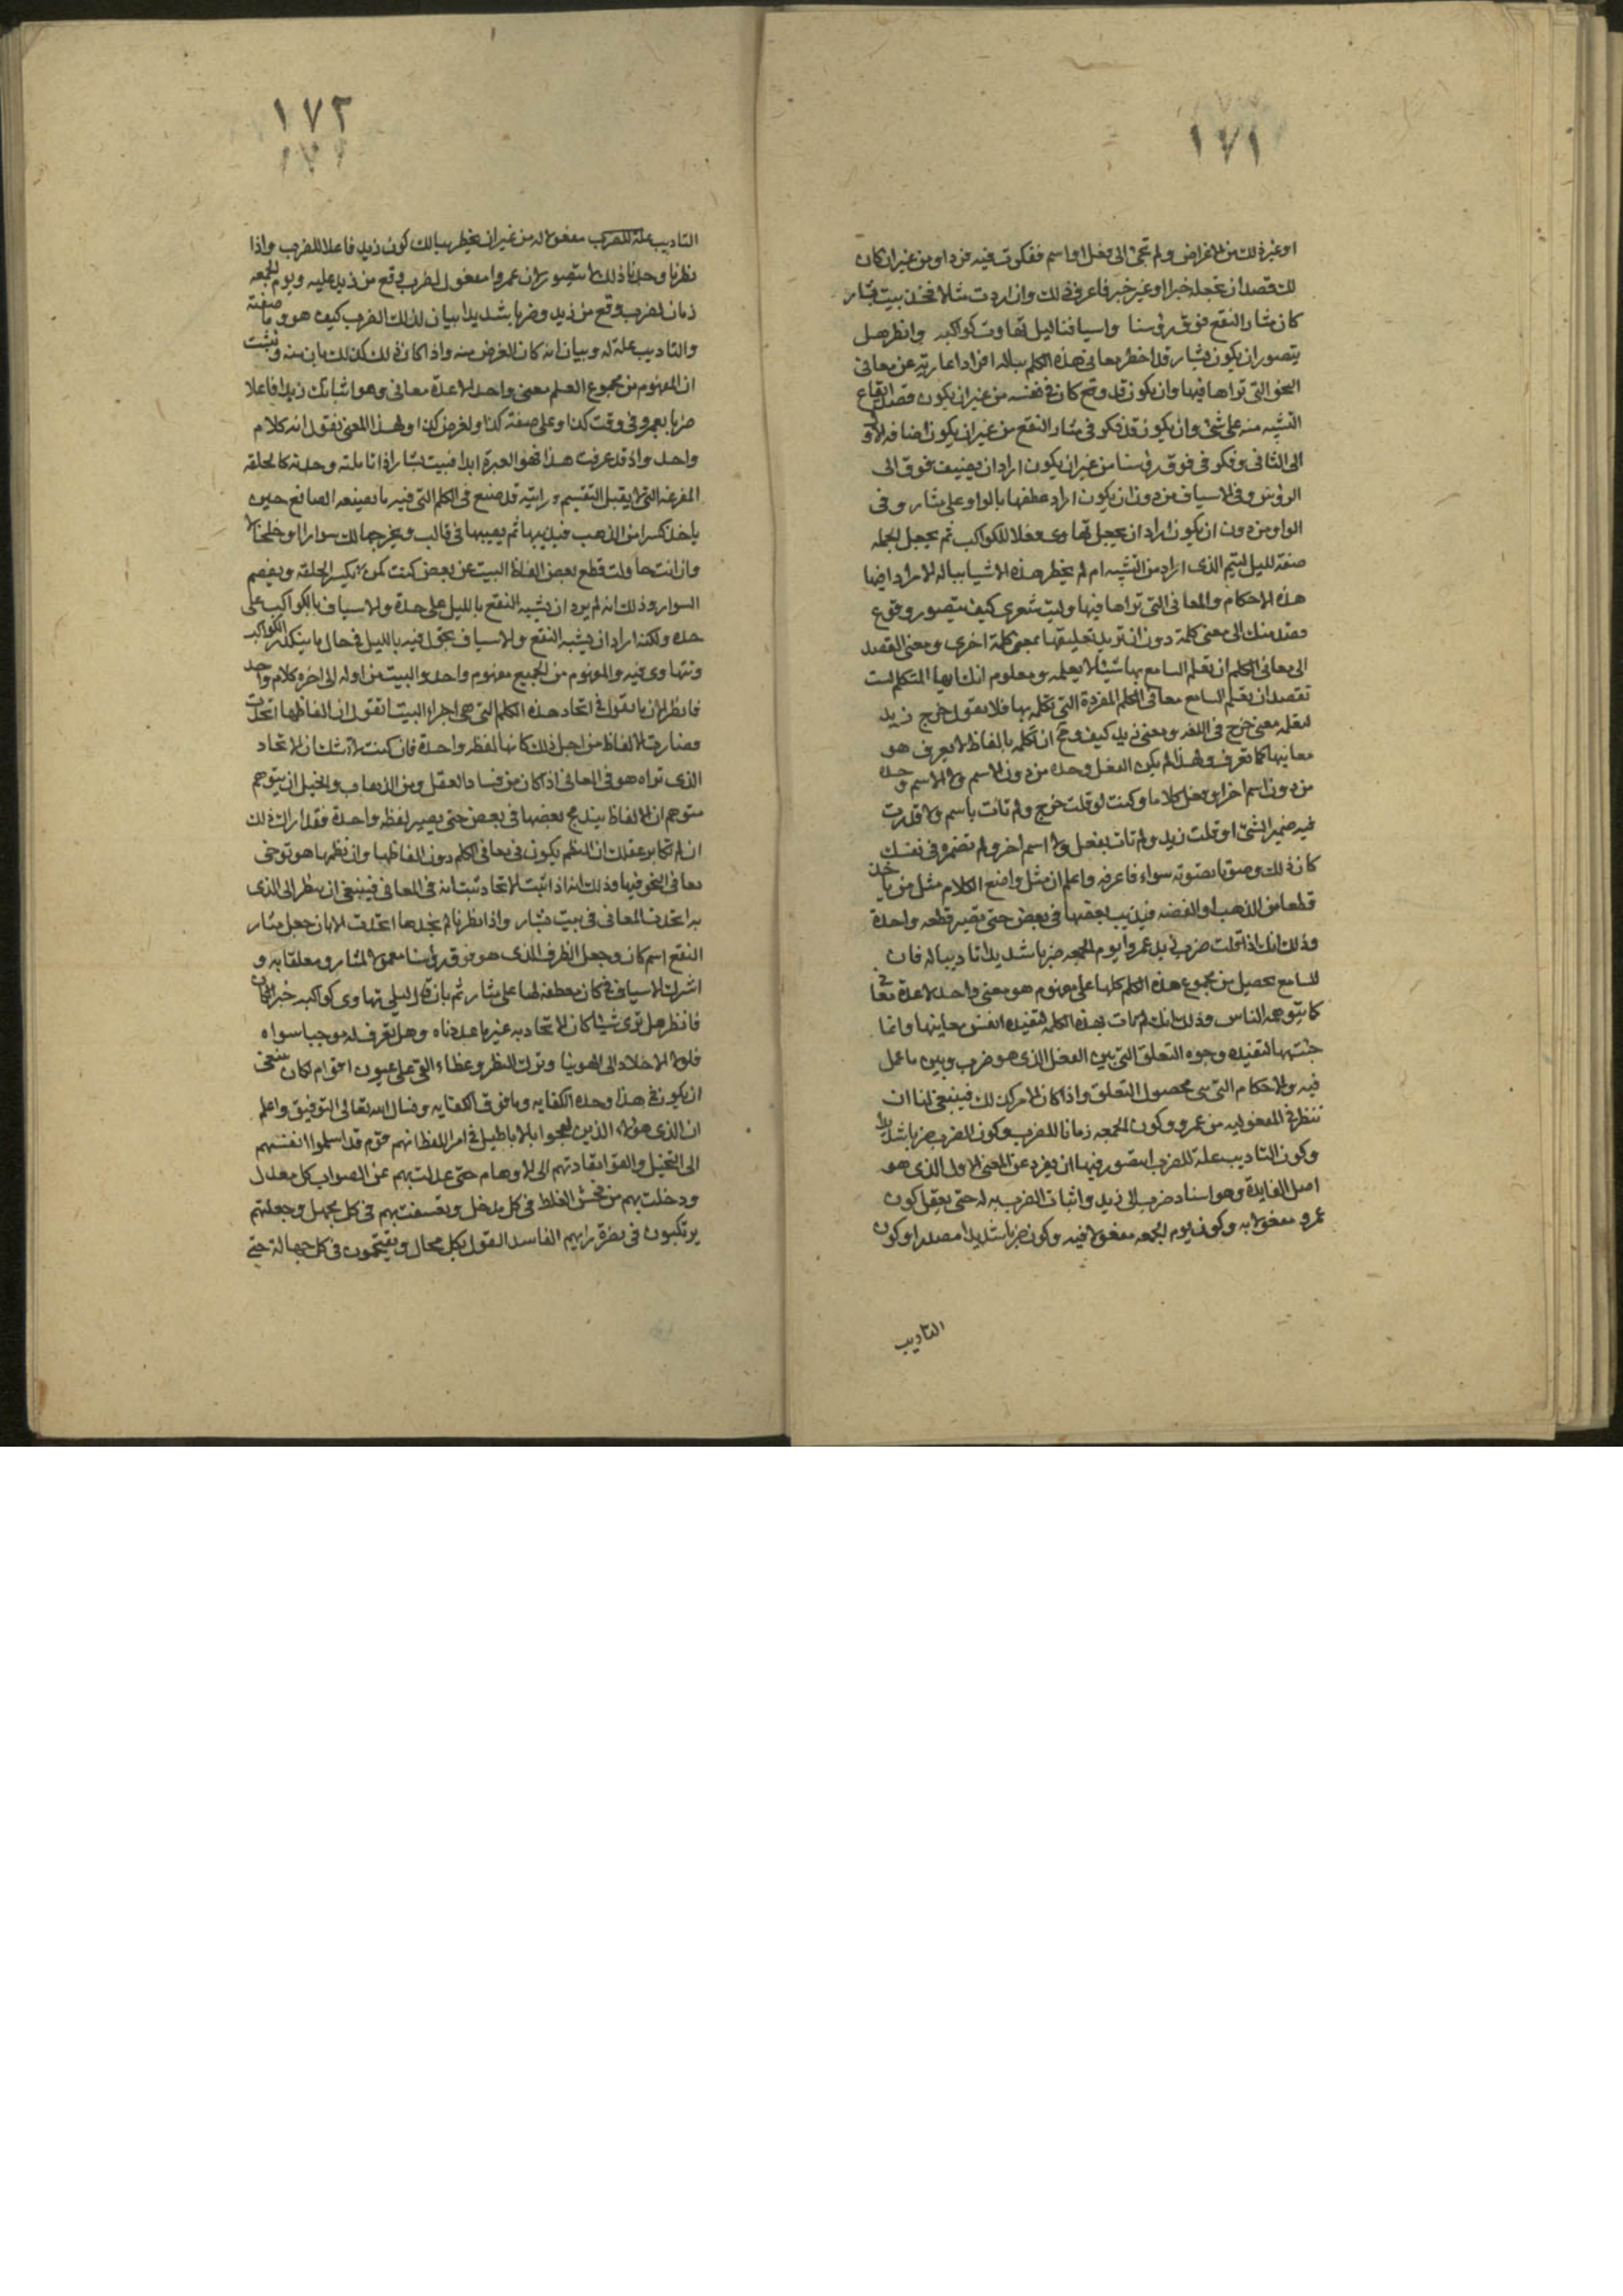 ١٧١
او غير ذلك من الاغراض ولم تجئ الى فعل او اسم ففكرت فيه فردا ومن غير ان كان
لك قصد ان تجعله خبرا او غير خبر فاعرف ذلك وان اردت مثلا فخذ بيت بشار
كان مثار النقع فوق رؤسنا واسيافنا ليل تهاوت كواكبه وانظر هل
يتصور ان يكون بشار قد اخطر معانى هذه الكلم بباله افرادا عارية عن معانى
النحو التى تراها فيها وان يكون قد وقع كان فى نفسه من غير ان يكون قصد ايقاع
التشبيه منه على شئ وان يكون قد فكر فى مثار النقع من غير ان يكون اضافه الاول
الى الثانى وفكر فى فوق رؤسنا من غير ان يكون اراد ان يضيف فوق الى
الروس وفى الاسياف من دون ان يكون اراد عطفها بالواو على مثار وفى
الواو من دون ان يكون اراد ان يجعل تهاوى فعلا للكواكب ثم يجعل الجمله
صفة لليل ليتم الذى اراد من التشبيه ام لم يخطر هذه الاشيا بباله الا مرادا فيها
هذه الاحكام والمعانى التى تراها فيها وليت شعرى كيف يتصور وقوع
قصد منك الى معنى كلمة دون ان تريد تعليقها بمعنى كلمة اخرى ومعنى القصد
الى معانى الكلم ان تعلم السامع بها شيئا لا يعلمه ومعلوم انك ايها المتكلم لست
تقصد ان تعلم السامع معانى الكلم المفردة التى تكلمه بها فلا تقول خرج زيد
لتعلمه معنى خرج فى اللغه ومعنى زيد كيف ومحال ان تكلمه بالفاظ لا يعرف هو
معانيها كما تعرف ولهذا لم يكن الفعل وحده من دون الاسم ولا الاسم وحده
من دون اسم اخر او فعل كلاما وكنت لو قلت خرج ولم تات باسم ولا قدرت
فيه ضمير الشئ او قلت زيد ولم تات بفعل ولا اسم اخر ولم تضمره فى نفسك
كان ذلك وصوتا تصوته سواء فاعرفه واعلم ان مثل واضع الكلام مثل من ياخذ
قطعا من الذهب او الفضه فيذيب بعضها فى بعض حتى تصير قطعه واحدة
وذلك انك اذا قلت ضرب زيد عمروا يوم الجمعه ضربا شديدا تاديبا له فان
للسامع يحصل من مجموع هذه الكلم كلها على مفهوم هو معنى واحد لا عدة معانى
كما يتوهمه الناس وذلك لانك لم تات بهذه الكلم لتفيده انفس معانيها وانما
جئت بها لتفيده وجوه التعلق التى بين الفعل الذى هو ضرب وبين ما عمل
فيه والاحكام التى هى محصول التعلق واذا كان الامر كذلك فينبغى لنا ان
ننظر فى المفعوليه من عمرو وكون الجمعه زمانا للضرب وكون الضرب ضربا شديدا
وكون التاديب علة للضرب ايتصور فيها ان يفرد عن المعنى الاول الذى هو
اصل الفايدة وهو اسناد ضرب الى زيد واثبات الضرب به له حتى يعقل كون
عمرو مفعولا به وكون يوم الجمعه مفعولا فيه وكون ضربا شديدا مصدرا وكون
التاديب
١٧٢
التاديب علة للضرب مفعولا له من غير ان يخطر ببالك كون زيد فاعلا للضرب واذا
نظرنا وجدنا ذلك لا يتصور لان عمروا مفعول لضرب وقع من زيد عليه ويوم الجمعه
زمان لضرب وقع من زيد وضربا شديدا بيان لذلك الضرب كيف هو وما صفته
والتاديب علة له وبيان انه كان الغرض منه واذا كان ذلك كذلك بان منه وثبت
ان المفهوم من مجموع الكلم معنى واحد لا عدة معانى وهو اثباتك زيدا فاعلا
ضربا بعمرو فى وقت كذا وعلى صفة كذا ولغرض كذا ولهذا المعنى نقول انه كلام
واحد واذ قد عرفت هذا فهو العبرة ابدا فبيت بشار اذا تاملته وجدته كالحلقه
المفرغه التى لا يقبل التقسيم ورايته قد صنع فى الكلم التى فيه ما يصنعه الصانع حين
ياخذ كسرا من الذهب فيذيبها ثم يصبها فى قالب ويخرجها لك سوارا او خلخالا
وان انت حاولت قطع بعض الفاظ البيت عن بعض كنت كمن يكسر الحلقه ويفصم
السوار وذلك انه لم يرد ان يشبه النقع بالليل على حدة والاسياف بالكواكب على
حده ولكنه اراد ان يشبه النقع والاسياف تجول فيه بالليل فى حال ما ينكدر الكواكب
وتتهاوى فيه والمفهوم من الجميع مفهوم واحد والبيت من اوله الى اخره كلام واحد
فانظر الان ما تقول فى اتحاد هذه الكلم التى هى اجزاء البيت اتقول ان الفاظها اتحدت
فصارت الالفاظ من اجل ذلك كانها لفظه واحدة فان كنت لا تشك ان الاتحاد
الذى تراه هو فى المعانى اذ كان من فساد العقل ومن الذهاب والخبل ان يتوهم
متوهم ان الالفاظ يندمج بعضها فى بعض حتى يصير لفظه واحدة فقد اراك ذلك
ان لم تكابر عقلك ان النظم يكون فى معانى الكلم دون الفاظها وان نظمها هو توخى
معانى النحو فيها وذلك انه اذا ثبت الاتحاد ثبت انه فى المعانى فينبغى ان ينظر الى الذى
به اتحدت المعانى فى بيت بشار واذا نظرنا لم نجدها اتحدت الا بان جعل مثار
النقع اسم كان وجعل الظرف الذى هو فوق رؤسنا معمولا لمثار ومعلقا به و
اشرك الاسياف فى كان بعطفه لها على مثار ثم بان قال ليل تهاوى كواكبه خبرا لكان
فانظر هل ترى شيئا كان الاتحاد به غير ما عددناه وهل تعرف له موجبا سواه
فلولا الاخلاد الى الهوينا وترك النظر وغطاء القى على عيون اقوام لكان ينبغى
ان يكون فى هذا وحده الكفايه وما فوق الكفايه ونسال الله تعالى التوفيق واعلم
ان الذى هؤلاء الذين لهجوا بالاباطيل فى امر اللفظ انهم قوم قد اسلموا انفسهم
الى التخيل والقوا مقادتهم الى الاوهام حتى عدلت بهم عن الصواب كل معدل
ودخلت بهم من فحش الغلط فى كل مدخل وتعسفت بهم فى كل مجهل وجعلتهم
يرتكبون فى نصرة رايهم الفاسد القول بكل محال ويقتحمون فى كل جهالة حتى